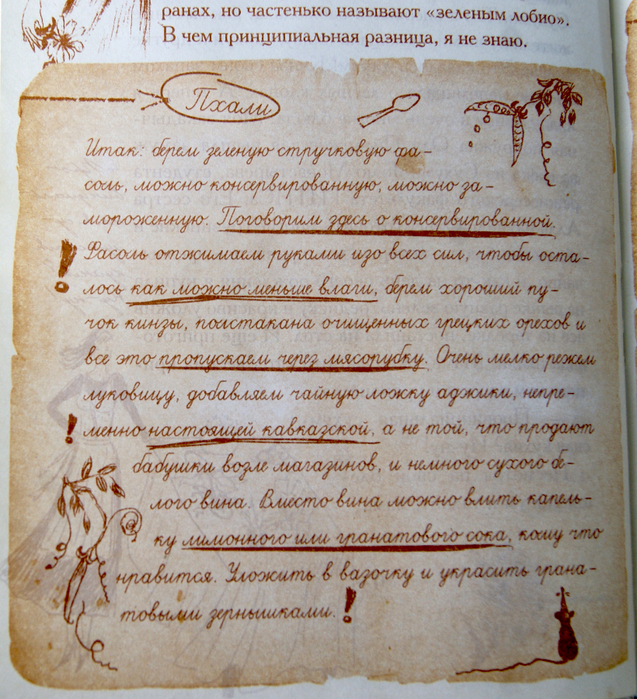 ранах, но частенько называют «зеленым лобио».
В чем принципиальная разница, я не знаю.
Пхали
Итак: берем зеленую стручковую фа-
соль, можно консервированную, можно за-
мороженную. Поговорим здесь о консервированной.
Фасоль отжимаем руками изо всех сил, чтобы оста-
лось как можно меньше влаги, берем хороший пу-
чок кинзы, полстакана очищенных грецких орехов и
все это пропускаем через мясорубку. Очень мелко режем
луковицу, добавляем чайную ложку аджики, непре-
менно настоящей кавказской, а не той, что продают
бабушки возле магазинов, и немного сухого бе-
лого вина. Вместо вина можно влить капель-
ку лимонного или гранатового сока, кому что
нравится. Уложить в вазочку и украсить грана-
товыми зернышками.